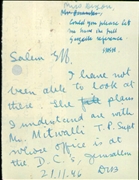 Could you please let
me have the full
Gazette reference
I have not
been able to look at
these. The plans
I understand are with
Mr. Mitwalli T.P. Supt
whose office is at
the D.C.'s, Jerusalem
21.11.46